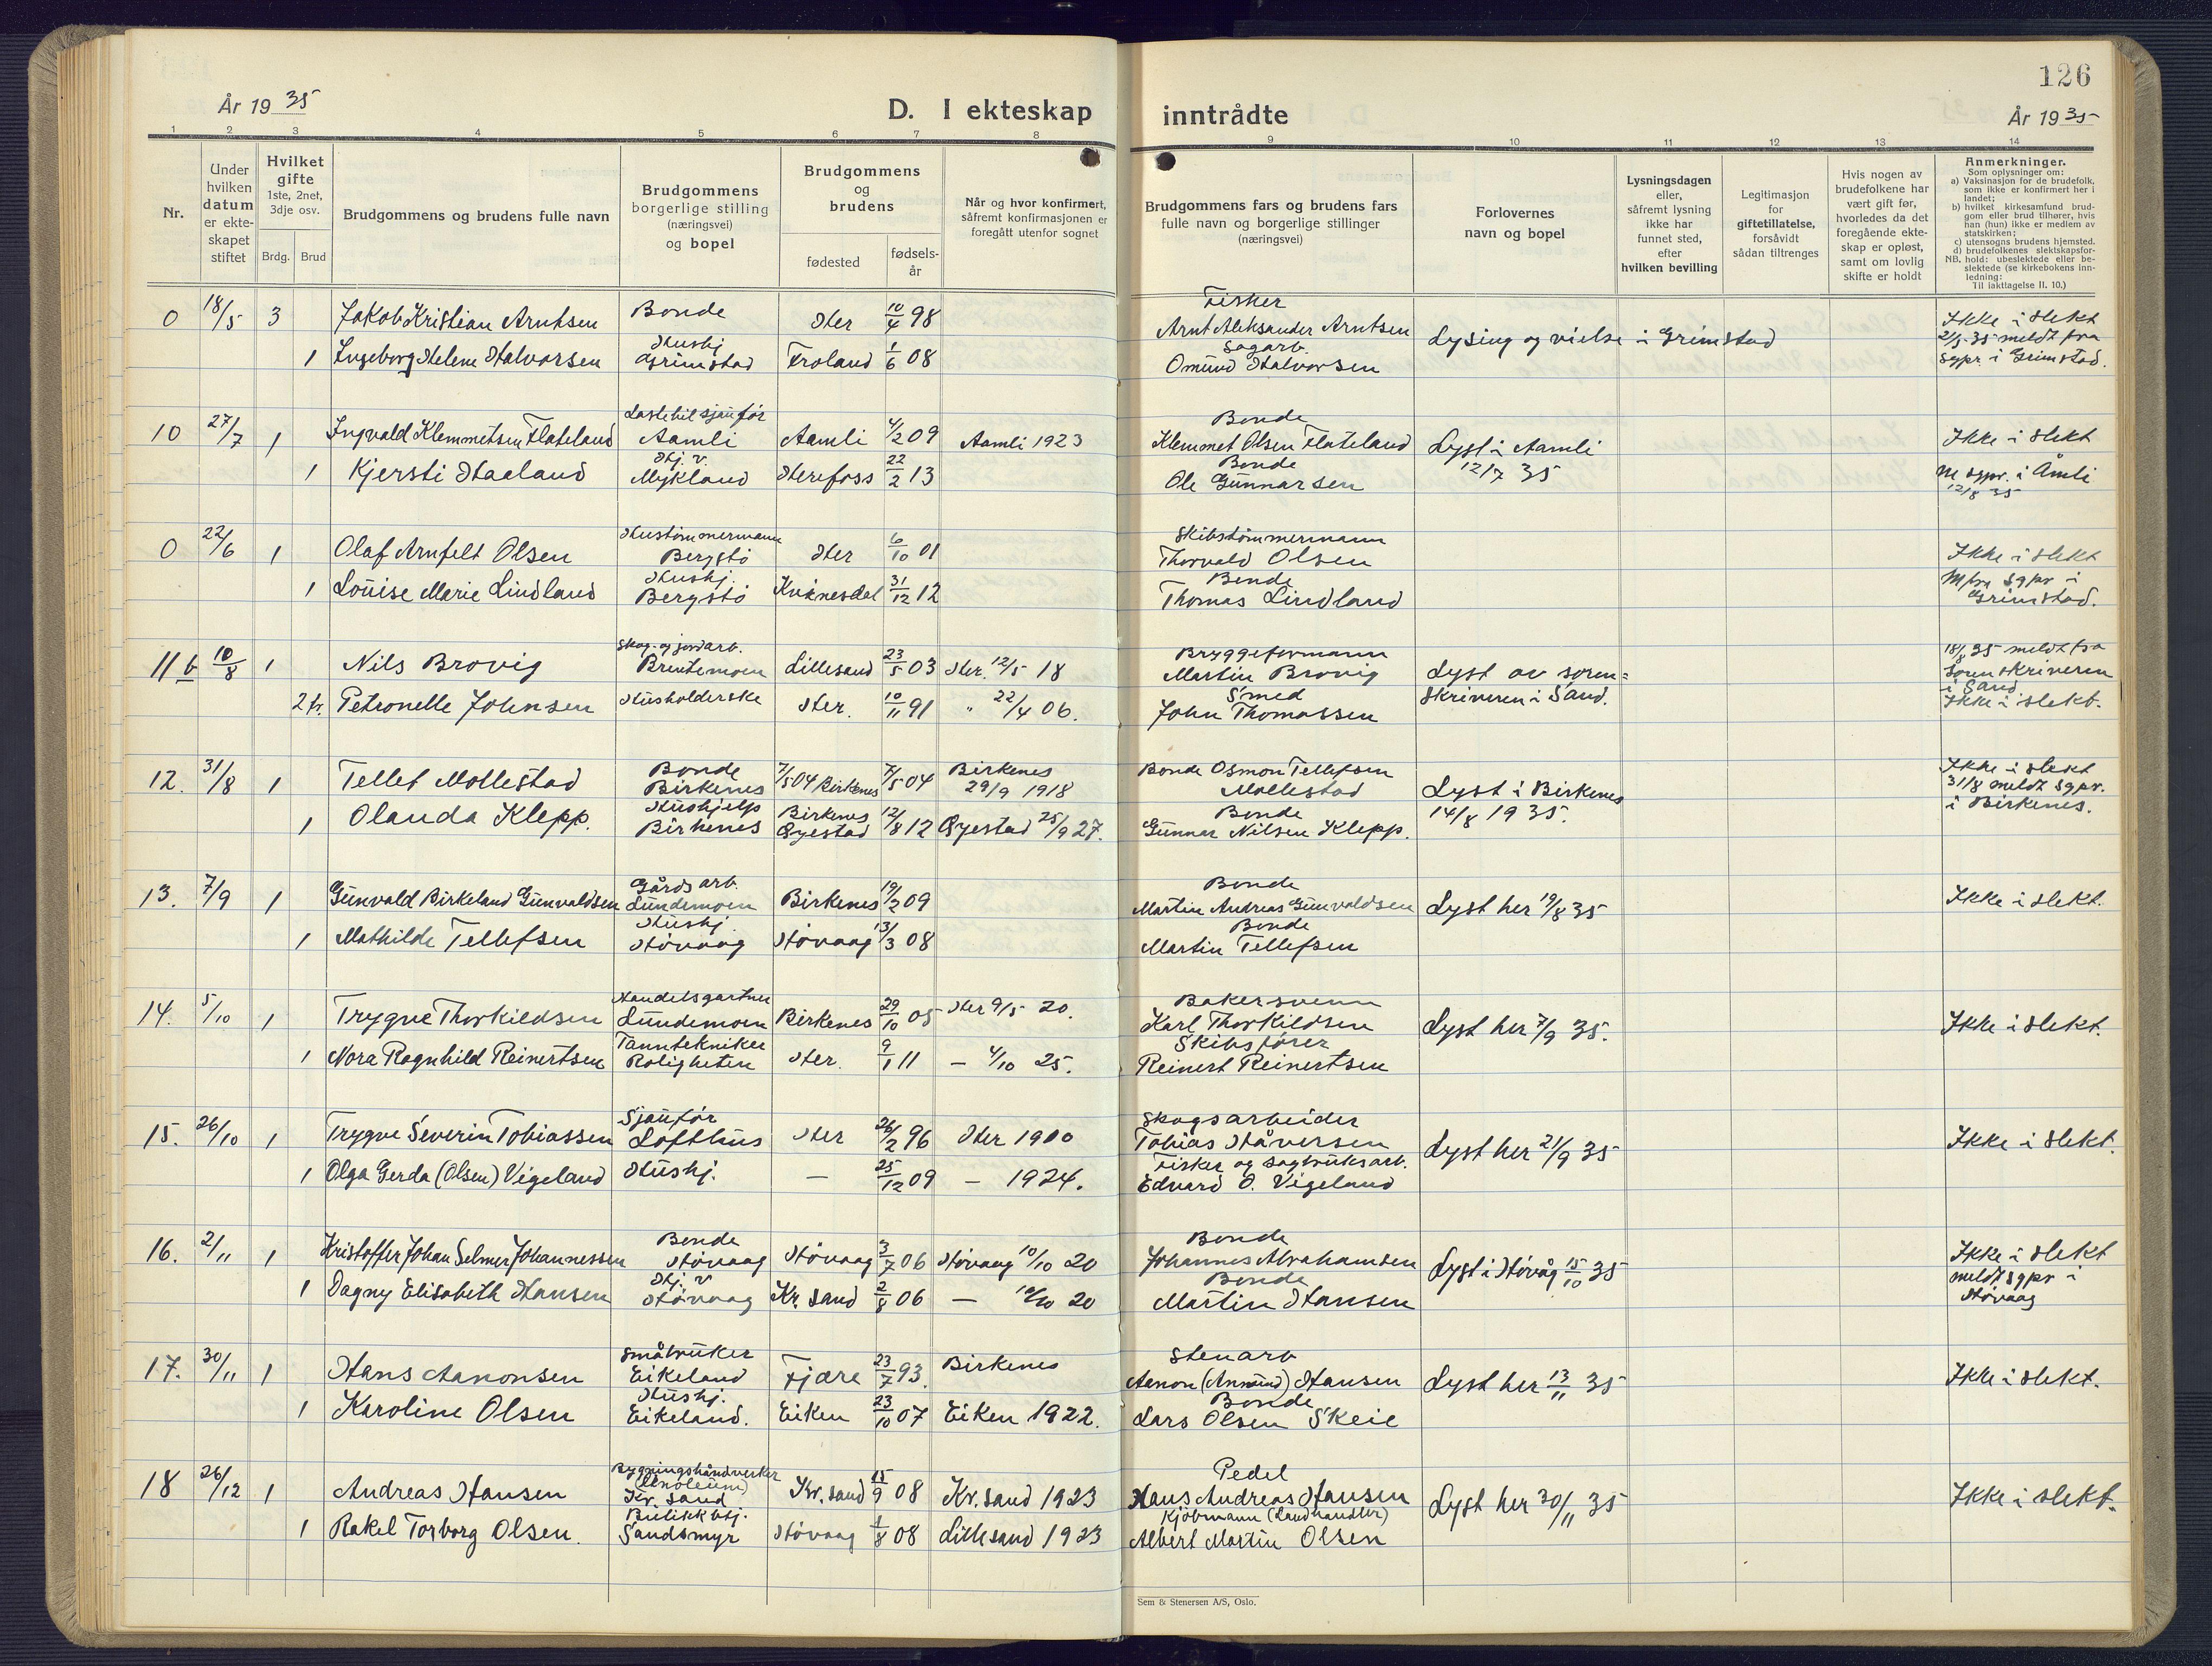 126
År 19 35
D. I ekteskap inntrådte
År 19 35
1 2 3 4 5 6 7 8 9 10 11 12 13 14
Nr.
Under hvilken datum er ekteskapet stiftet
Hvilket gifte 1ste, 2net, 3dje osv.
Brdg. Brud
Brudgommens og brudens fulle navn
Brudgommens borgerlige stilling (næringsvei) og bopel
Brudgommens og brudens
fødested
fødsels-år
Når og hvor konfirmert, såfremt konfirmasjonen er foregått utenfor sognet
Brudgommens fars og brudens fars fulle navn og borgerlige stillinger (næringsvei)
Forlovernes navn og bopel
Lysningsdagen eller, såfremt lysning ikke har funnet sted, efter hvilken bevilling
Legitimasjon for giftetillatelse, forsåvidt sådan tiltrenges
Hvis nogen av brudefolkene har vært gift før, hvorledes da det foregående ekteskap er opløst, samt om lovlig skifte er holdt
Anmerkninger.
Som oplysninger om:
a) Vaksinasjon for de brudefolk, som ikke er konfirmert her i landet;
b) hvilket kirkesamfund brudgom eller brud tilhører, hvis han (hun) ikke er medlem av statskirken;
c) utensogns brudens hjemsted.
d) brudefolkenes slektskapsforhold: ubeslektede eller beslektede (se kirkebokens innledning:
NB.
Til iakttagelse II. 10.)
0 18/5 3 Jakob Kristian Arntsen Bonde Her 10/4 98 Fisker Arnt Aleksander Arntsen Lysing og vielse i Grimstad Ikke i slekt
1 Ingeborg Helene Halvorsen Hushj Grimstad Froland 1/6 08 Sagarb. Omund Halvorsen 21/5 35 meldt fra sgpr. i Grimstad.
10 27/7 1 Ingvald Klemmetsen Flateland Lastebilsjauför Aamli Aamli 4/2 09 Aamli 1923 Bonde Klemmet Olsen Flateland Lyst i Aamli 12/7 35 Ikke i slekt
1 Kjersti Haaland Hj. v. Mykland Herefoss 22/2 13 Bonde Ole Gunnarsen M sgpr. i Åmli 12/8 35
0 22/6 1 Olaf Arnfelt Olsen Hustømmermann Bergstö Her 6/10 01 Skibstömmermann Thorvald Olsen Ikke i slekt
1 Louise Marie Lindland Hushj. Bergstö Kvinesdal 31/12 12 Bonde Thomas Lindland M fra sgpr i Grimstad.
11 b 10/8 1 Nils Brovig Skog- og jordarb. Brentemoen Lillesand 23/5 03 Her. 12/5 18 Bryggeformann Martin Brovig Lyst av sorenskriveren i Sand. 18/8 35 meldt fra sorenskriveren i Sand
2 fr. Petronelle Johnsen Husholderske Her. 10/11 91 " 22/4 06. Smed John Thomassen Ikke i slekt.
12. 31/8 1 Tellef Mollestad Bonde Birkenes 7/5 04 Birkenes 7/5 04 Birkenes 29/9 1918 Bonde Osmon Tellefsen Mollestad Lyst i Birkenes 14/8 1935. Ikke i slekt
1 Olanda Klepp. Hushjelp Birkenes Birkenes Øyestad 12/8 12 Øyestad 25/9 27. Bonde Gunnar Nilsen Klepp. 31/8 meldt sgpr. i Birkenes.
13. 7/9 1 Gunvald Birkeland Gunvaldsen Gårdsarb. Lundemoen Birkenes 19/2 09 Bonde Martin Andreas Gunvaldsen Lyst her 19/8 35 Ikke i slekt.
1 Mathilde Tellefsen Hushj. Høvaag Høvaag 13/3 08 Bonde Martin Tellefsen
14. 5/10 1 Trygve Thorkildsen Handelsgartner Lundemoen Birkenes 29/10 05 Her 9/5 20. Bakersvenn Karl Thorkildsen Lyst her 7/9 35. Ikke i slekt.
1 Nora Ragnhild Reinertsen Tanntekniker Roligheten Her. 9/1 11 — 4/10 25. Skibsfører Reinert Reinertsen
15. 26/10 1 Trygve Severin Tobiassen Sjauför Lofthus Her 26/2 96 Her 1910 Skogsarbeider Tobias Håversen Lyst her 21/9 35 Ikke i slekt.
1 Olga Gerda (Olsen) Vigeland Hushj. — 25/12 09 — 1924. Fisker og sagbruksarb. Edvard O. Vigeland
16. 2/11 1 Kristoffer Johan Selmer Johannessen Bonde Høvaag Høvaag 3/7 06 Høvaag 10/10 20 Bonde Johannes Abrahamsen Lyst i Høvåg 15/10 35 Ikke i slekt
1 Dagny Elisabeth Hansen Hj. v Høvaag Kr. sand 2/8 06 — 10/10 20 Bonde Martin Hansen meldt sgpr i Høvaag
17. 30/11 1 Hans Aanonsen Småbruker Eikeland Fjære 23/7 93. Birkenes Stenarb Aanon (Anmund) Hansen Lyst her 13/11 35 Ikke i slekt.
1 Karoline Olsen Hushj. Eikeland. Eiken 23/10 07 Eiken 1922. Bonde Lars Olsen Skeie
18 26/12 1 Andreas Hansen Bygningshåndverker (linoleum) Kr. sand Kr. sand 15/9 08 Kr. sand 1923 Pedel Hans Andreas Hansen Lyst her 30/11 35 Ikke i slekt.
1 Rakel Torborg Olsen. Butikkbtj. Sandsmyr Høvaag 1/8 08 Lillesand 1923 Kjøbmann (Landhandler) Albert Martin Olsen
Sem & Stenersen A/S, Oslo.